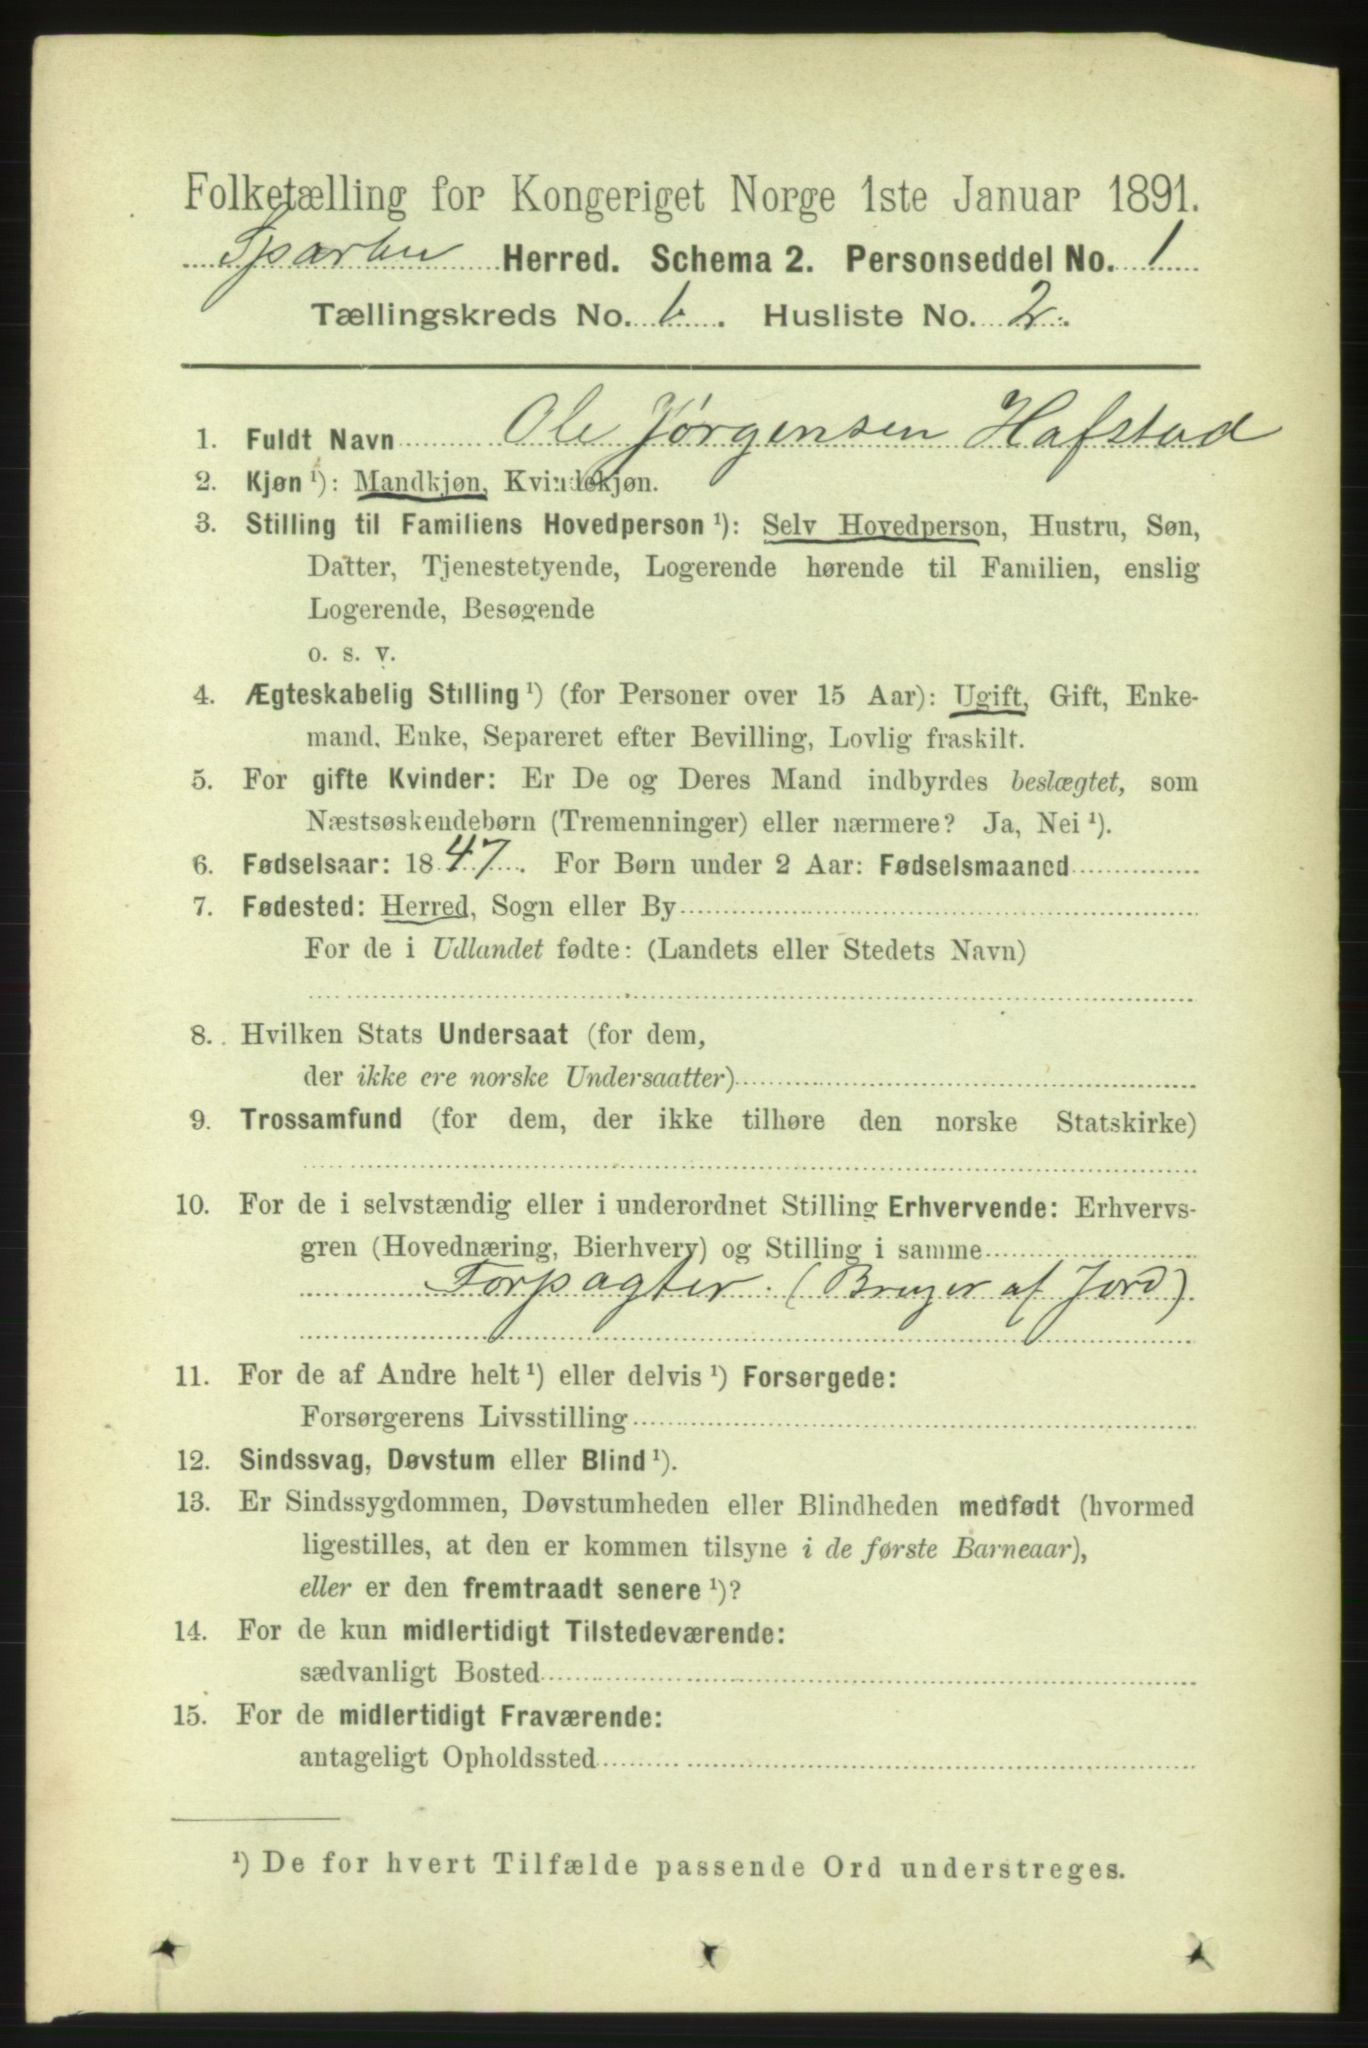 Folketælling for Kongeriget Norge 1ste Januar 1891.
Sparbu Herred. Schema 2. Personseddel No. 1
Tællingskreds No. 6. Husliste No. 2.
1. Fuldt Navn Ole Jørgensen Hafstad
2. Kjøn ¹): Mandkjøn, Kvindekjøn.
3. Stilling til Familiens Hovedperson ¹): Selv Hovedperson, Hustru, Søn,
Datter, Tjenestetyende, Logerende hørende til Familien, enslig
Logerende, Besøgende
o. s. v.
4. Ægteskabelig Stilling ¹) (for Personer over 15 Aar): Ugift, Gift, Enke-
mand, Enke, Separeret efter Bevilling, Lovlig fraskilt.
5. For gifte Kvinder: Er De og Deres Mand indbyrdes beslægtet, som
Næstsøskendebørn (Tremenninger) eller nærmere? Ja, Nei ¹).
6. Fødselsaar: 1847. For Børn under 2 Aar: Fødselsmaaned
7. Fødested: Herred, Sogn eller By
For de i Udlandet fødte: (Landets eller Stedets Navn)
8. Hvilken Stats Undersaat (for dem,
der ikke ere norske Undersaatter)
9. Trossamfund (for dem, der ikke tilhøre den norske Statskirke)
10. For de i selvstændig eller i underordnet Stilling Erhvervende: Erhvervs-
gren (Hovednæring, Bierhverv) og Stilling i samme
Forpagter. (Bruger af Jord)
11. For de af Andre helt ¹) eller delvis ¹) Forsørgede:
Forsørgerens Livsstilling
12. Sindssvag, Døvstum eller Blind ¹).
13. Er Sindssygdommen, Døvstumheden eller Blindheden medfødt (hvormed
ligestilles, at den er kommen tilsyne i de første Barneaar),
eller er den fremtraadt senere ¹)?
14. For de kun midlertidigt Tilstedeværende:
sædvanligt Bosted
15. For de midlertidigt Fraværende:
antageligt Opholdssted
¹) De for hvert Tilfælde passende Ord understreges.